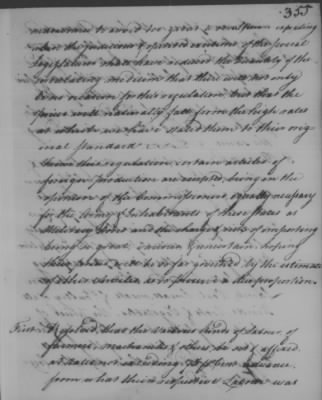 355
measures to avoid too great a revulsion expecting
when the judicious & spirited exertions of the several
Legislatures shall have reduced the quantity of the
circulating medium that there will not only
be no reason for this regulation but that the
prices will naturally fall from the high rates
at which we have stated them to their orig
inal standard
From this regulation certain articles of
foreign production are excepted, being in the
opinion of the Commissioners, really necessary
for the Army & Inhabitants of these States as
Military Stores and the charges & risk of importing
being so great, various & uncertain, hoping
these prices will be so far guided by the estimate
of other articles, as to prevent a disproportion.
First. Resolved, that the various kinds of Labour of
farmers, mechanicks & others, be set & affixed
at rates not exceeding 75 pr Cent. advance
from what their respective Labour was